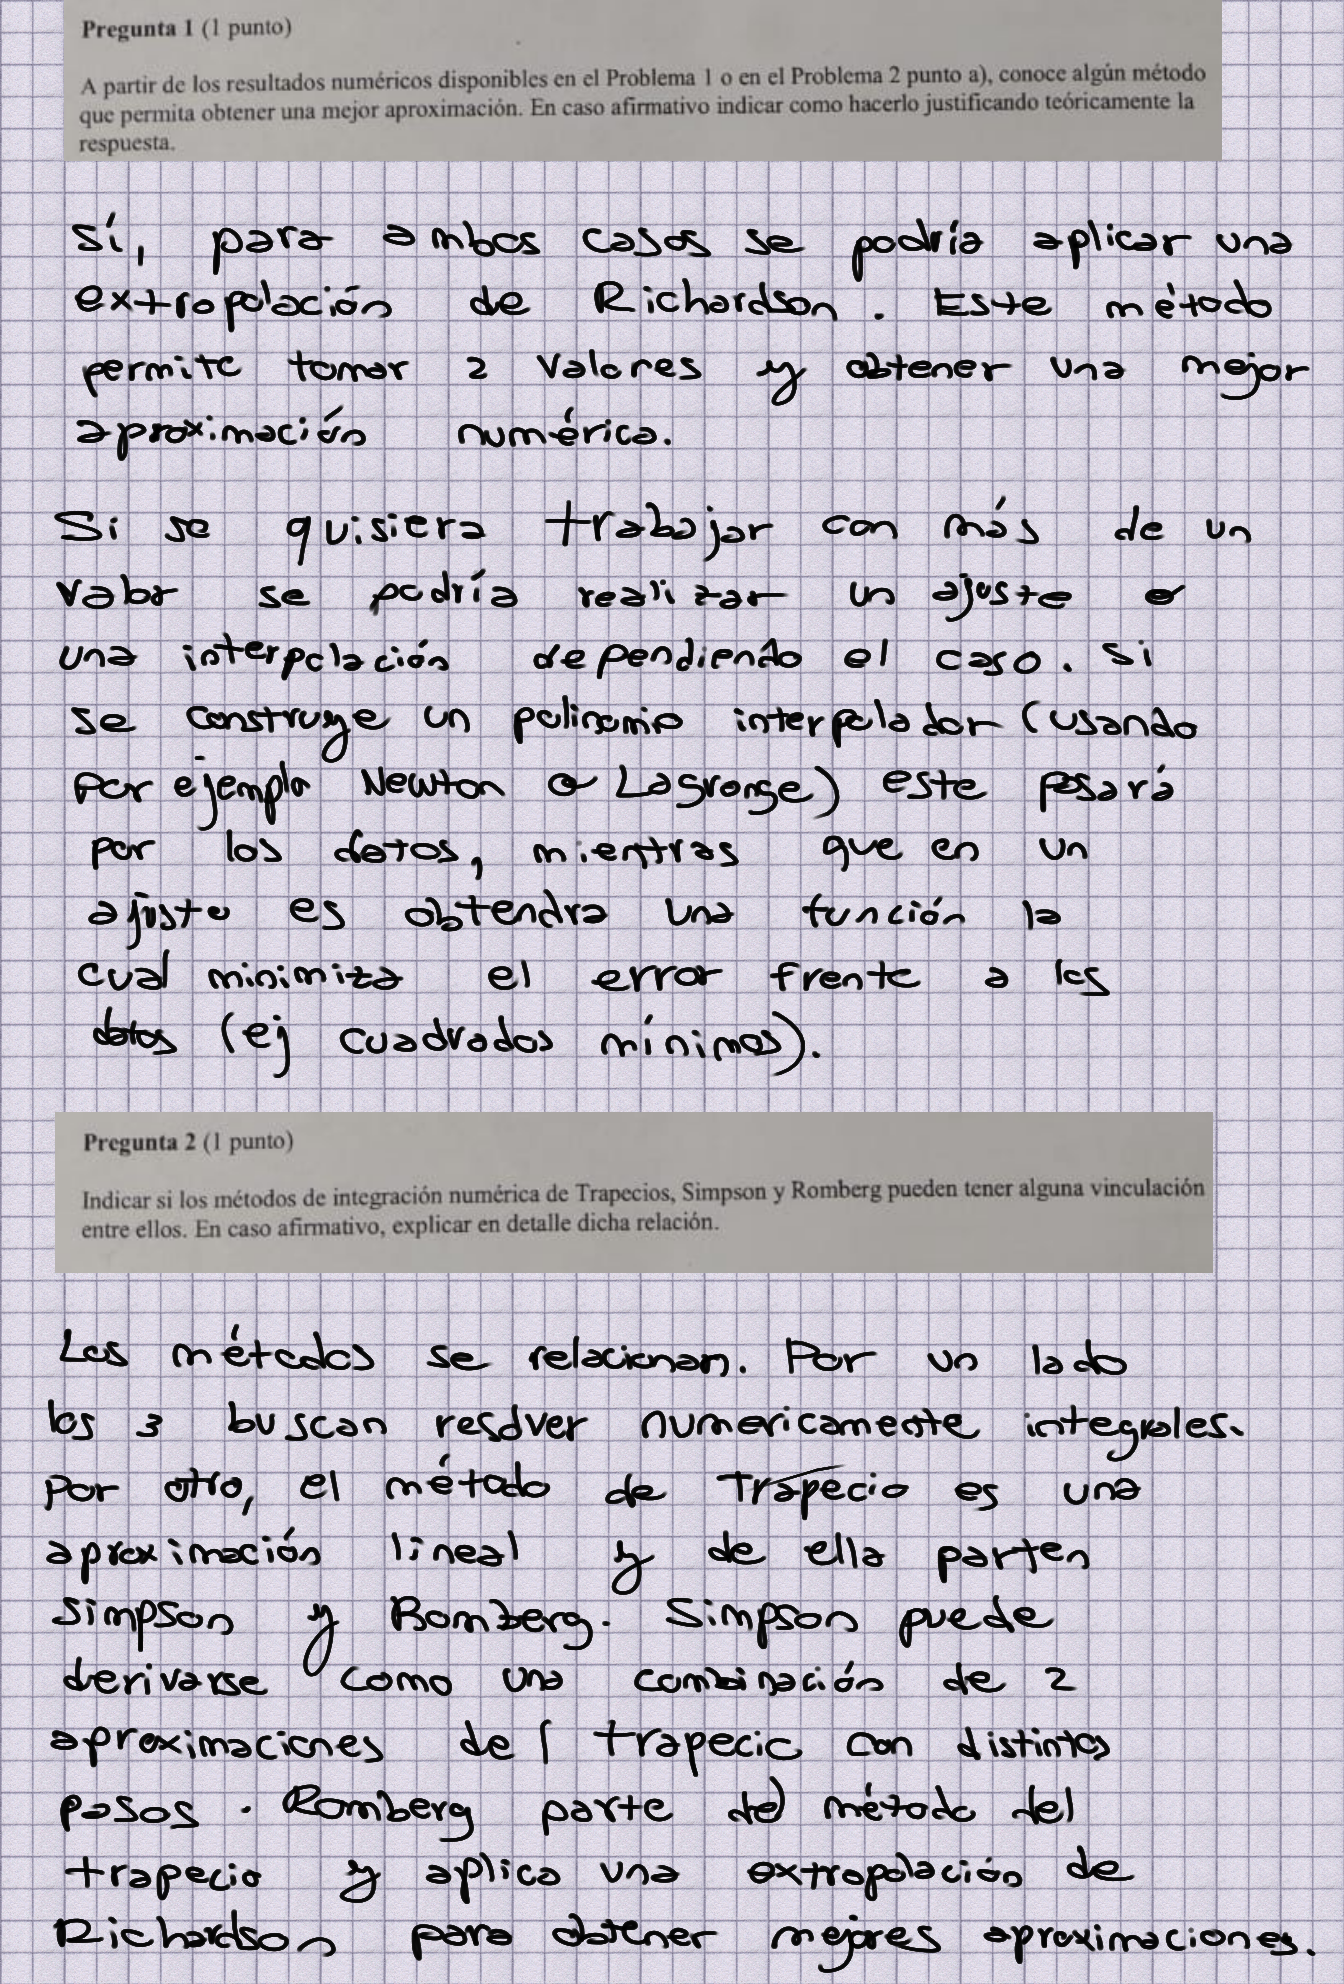 Pregunta 1 (1 punto)
A partir de los resultados numéricos disponibles en el Problema 1 o en el Problema 2 punto a), conoce algún método
que permita obtener una mejor aproximación. En caso afirmativo indicar como hacerlo justificando teóricamente la
respuesta.
Sí, para ambos casos se podría aplicar una
extropolación de Richardson. Este método
permite tomar 2 valores y obtener una mejor
aproximación numérica.
Si se quisiera trabajar con más de un
valor se podría realizar un ajuste o
una interpolación dependiendo el caso. Si
se construye un polinomio interpolador (usando
por ejemplo Newton o Lagrange) este pasará
por los datos, mientras que en un
ajuste es obtendra una función la
cual minimiza el error frente a los
datos (ej cuadrados mínimos).
Pregunta 2 (1 punto)
Indicar si los métodos de integración numérica de Trapecios, Simpson y Romberg pueden tener alguna vinculación
entre ellos. En caso afirmativo, explicar en detalle dicha relación.
Los métodos se relacionan. Por un lado
los 3 buscan resolver numericamente integrales.
Por otro, el método de Trapecio es una
aproximación lineal y de ella parten
Simpson y Romberg. Simpson puede
derivarse como una combinación de 2
aproximaciones del trapecio con distintos
pasos. Romberg parte del método del
trapecio y aplica una extrapolación de
Richardson para obtener mejores aproximaciones.